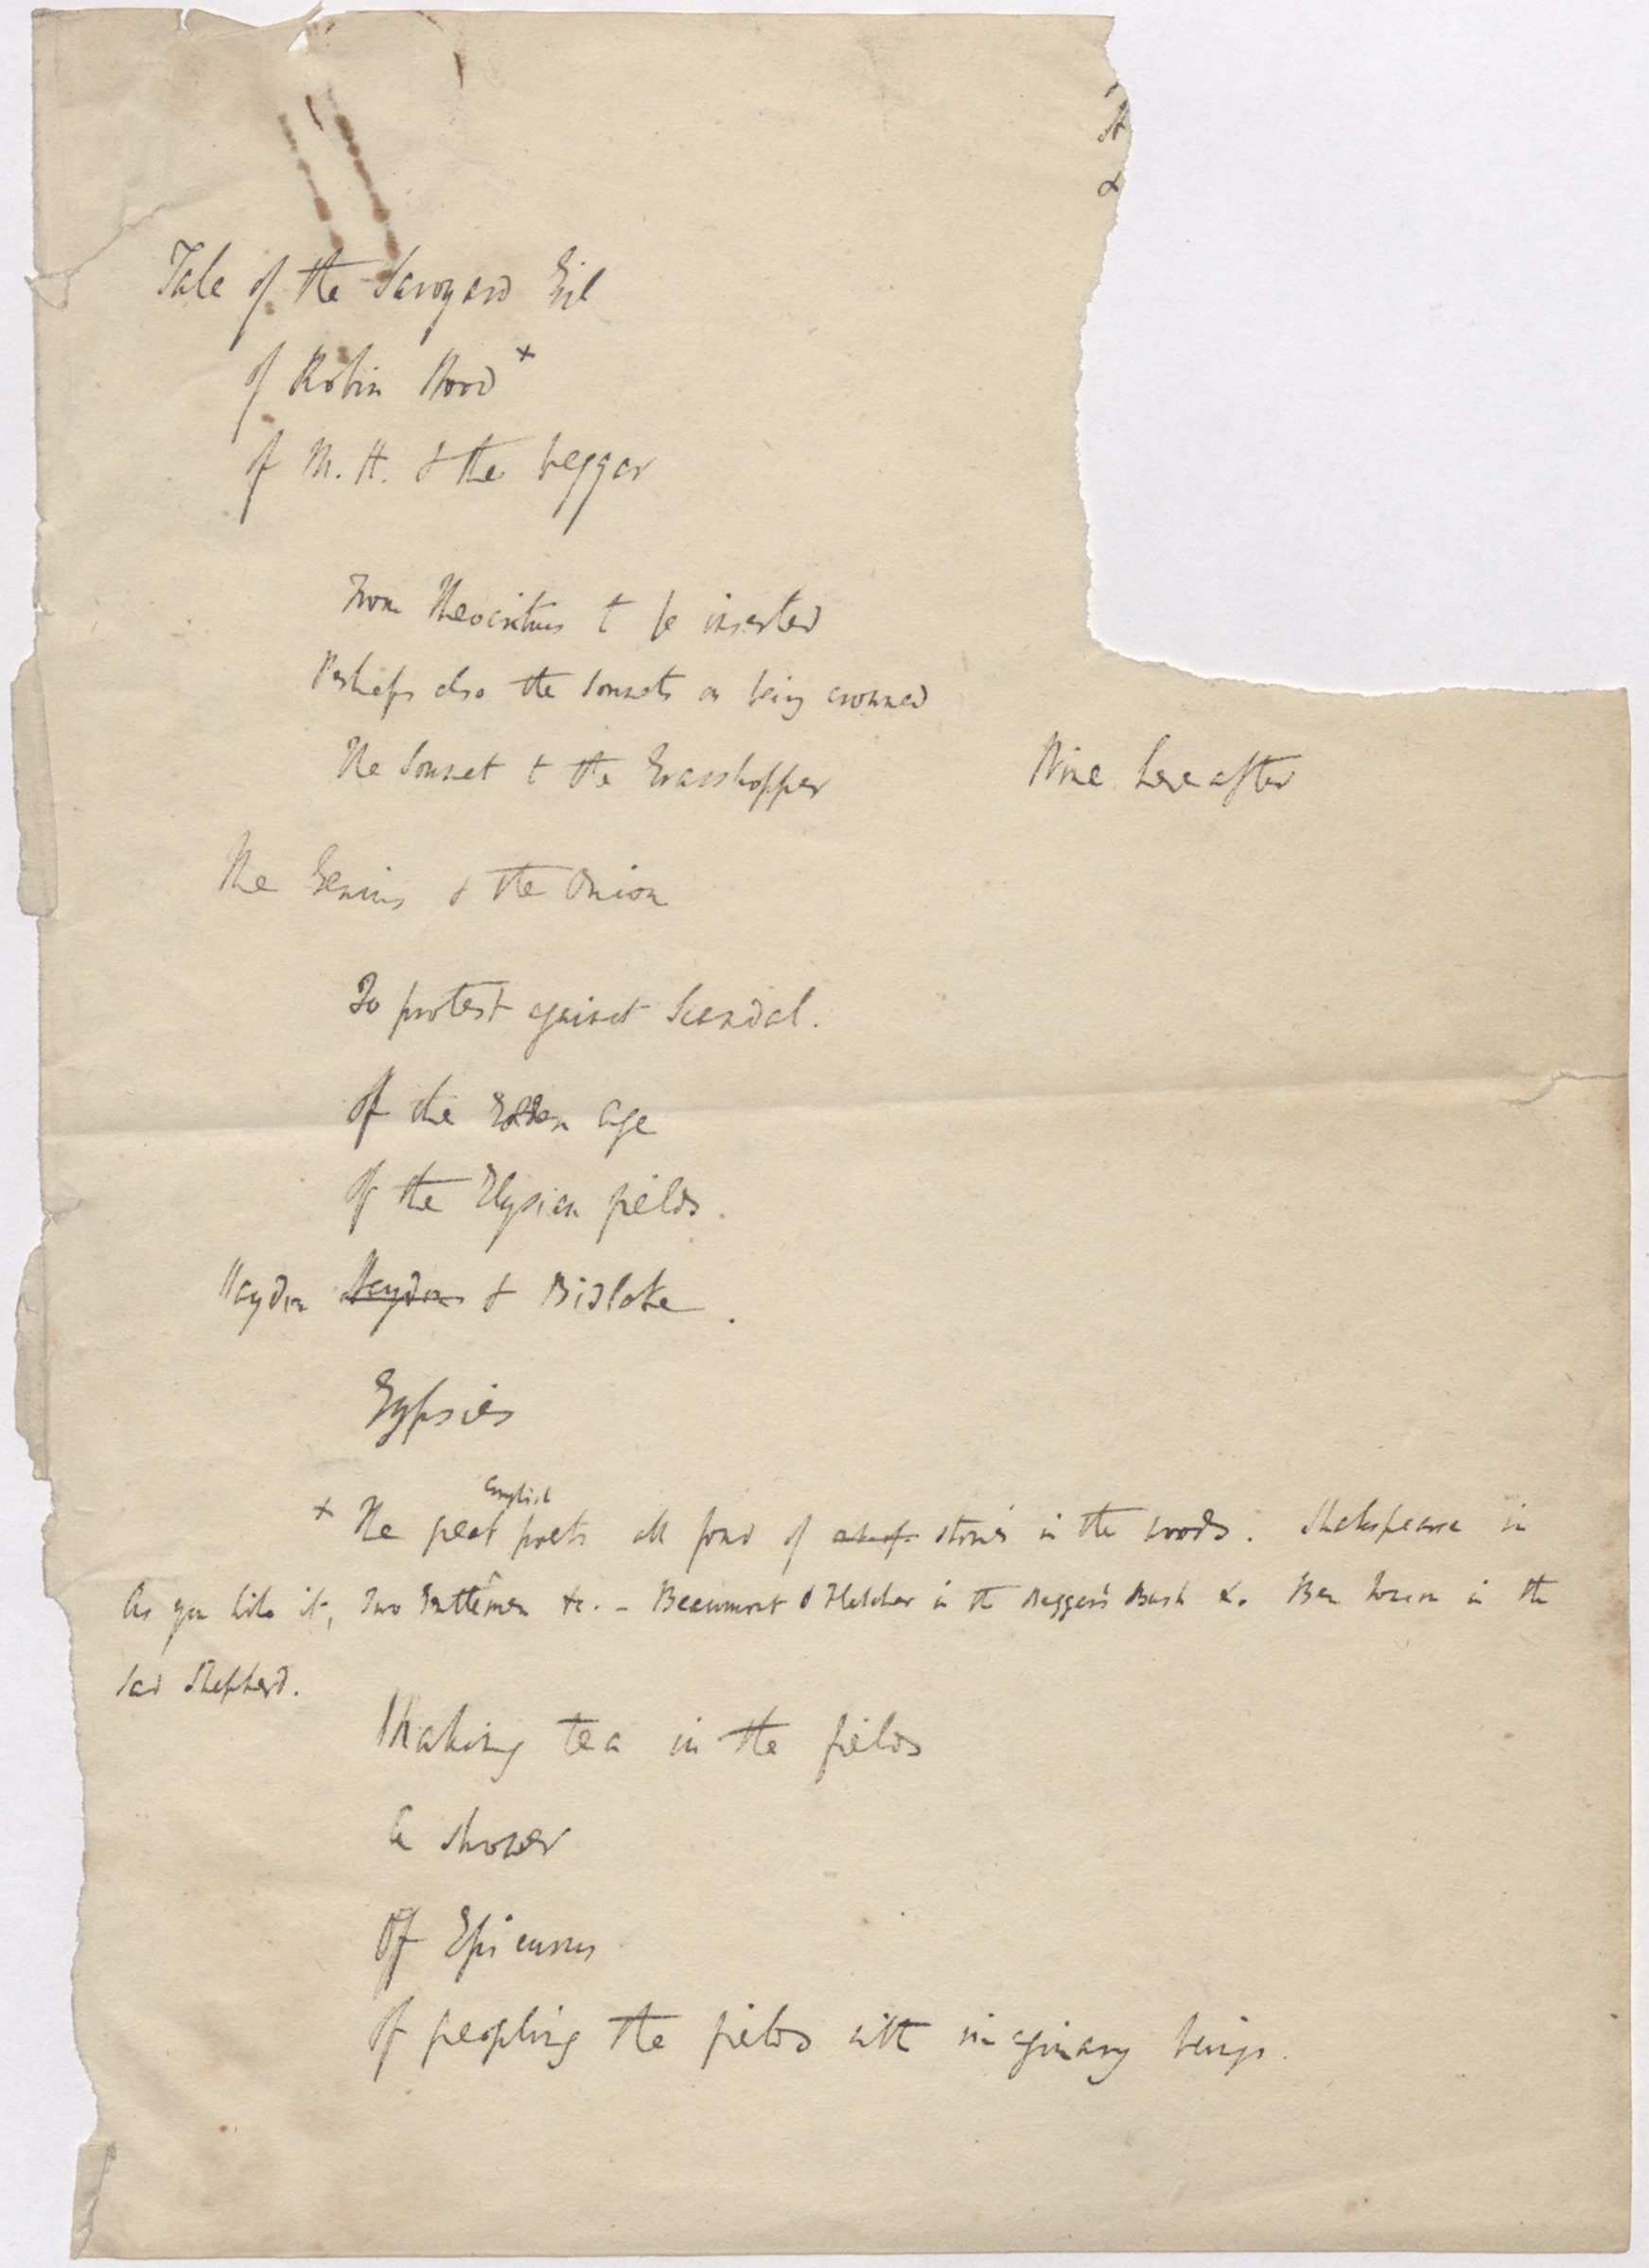 Tale of the Savoyard Girl
of Robin Hood +
of M. H. & the beggar
From Theocritus to be inserted
Perhaps also the Sonnets on being crowned
The Sonnet to the Grasshopper
Nine hereafter
The Genius & the Onion
To protest against Scandal.
Of the Golden age
Of the Elysian fields.
Haydon Haydon & Bidlake.
Gypsies
+ The great English poets all fond of stories in the woods. Shakspeare in
As you like it, Two Gentlemen &c. - Beaumont & Fletcher in the Beggar's Bush &c. Ben Jonson in the
Sad Shepherd.
Making tea in the fields
A shower
Of Epicurus
Of peopling the fields with imaginary beings.